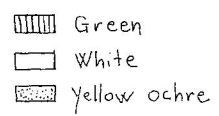 Green
White
Yellow ochre